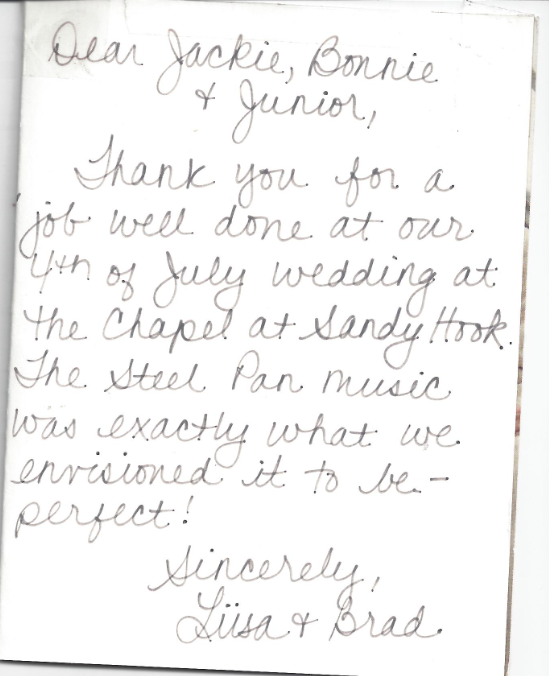 Dear Jackie, Bonnie
& Junior,
Thank you for a
job well done at our
4th of July wedding at
the Chapel at Sandy Hook.
The Steel Pan music
was exactly what we
envisioned it to be -
perfect!
Sincerely,
Liisa & Brad